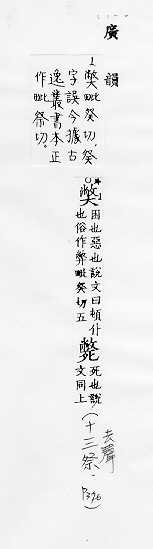 廣韻
1 獘毗癸切,癸
字誤今據古
逸叢書本正
作毗祭切。
獘 困也惡也說文曰頓仆
也俗作弊毗癸切五
斃 死也說
文同上
(十三祭.
去聲
P376)